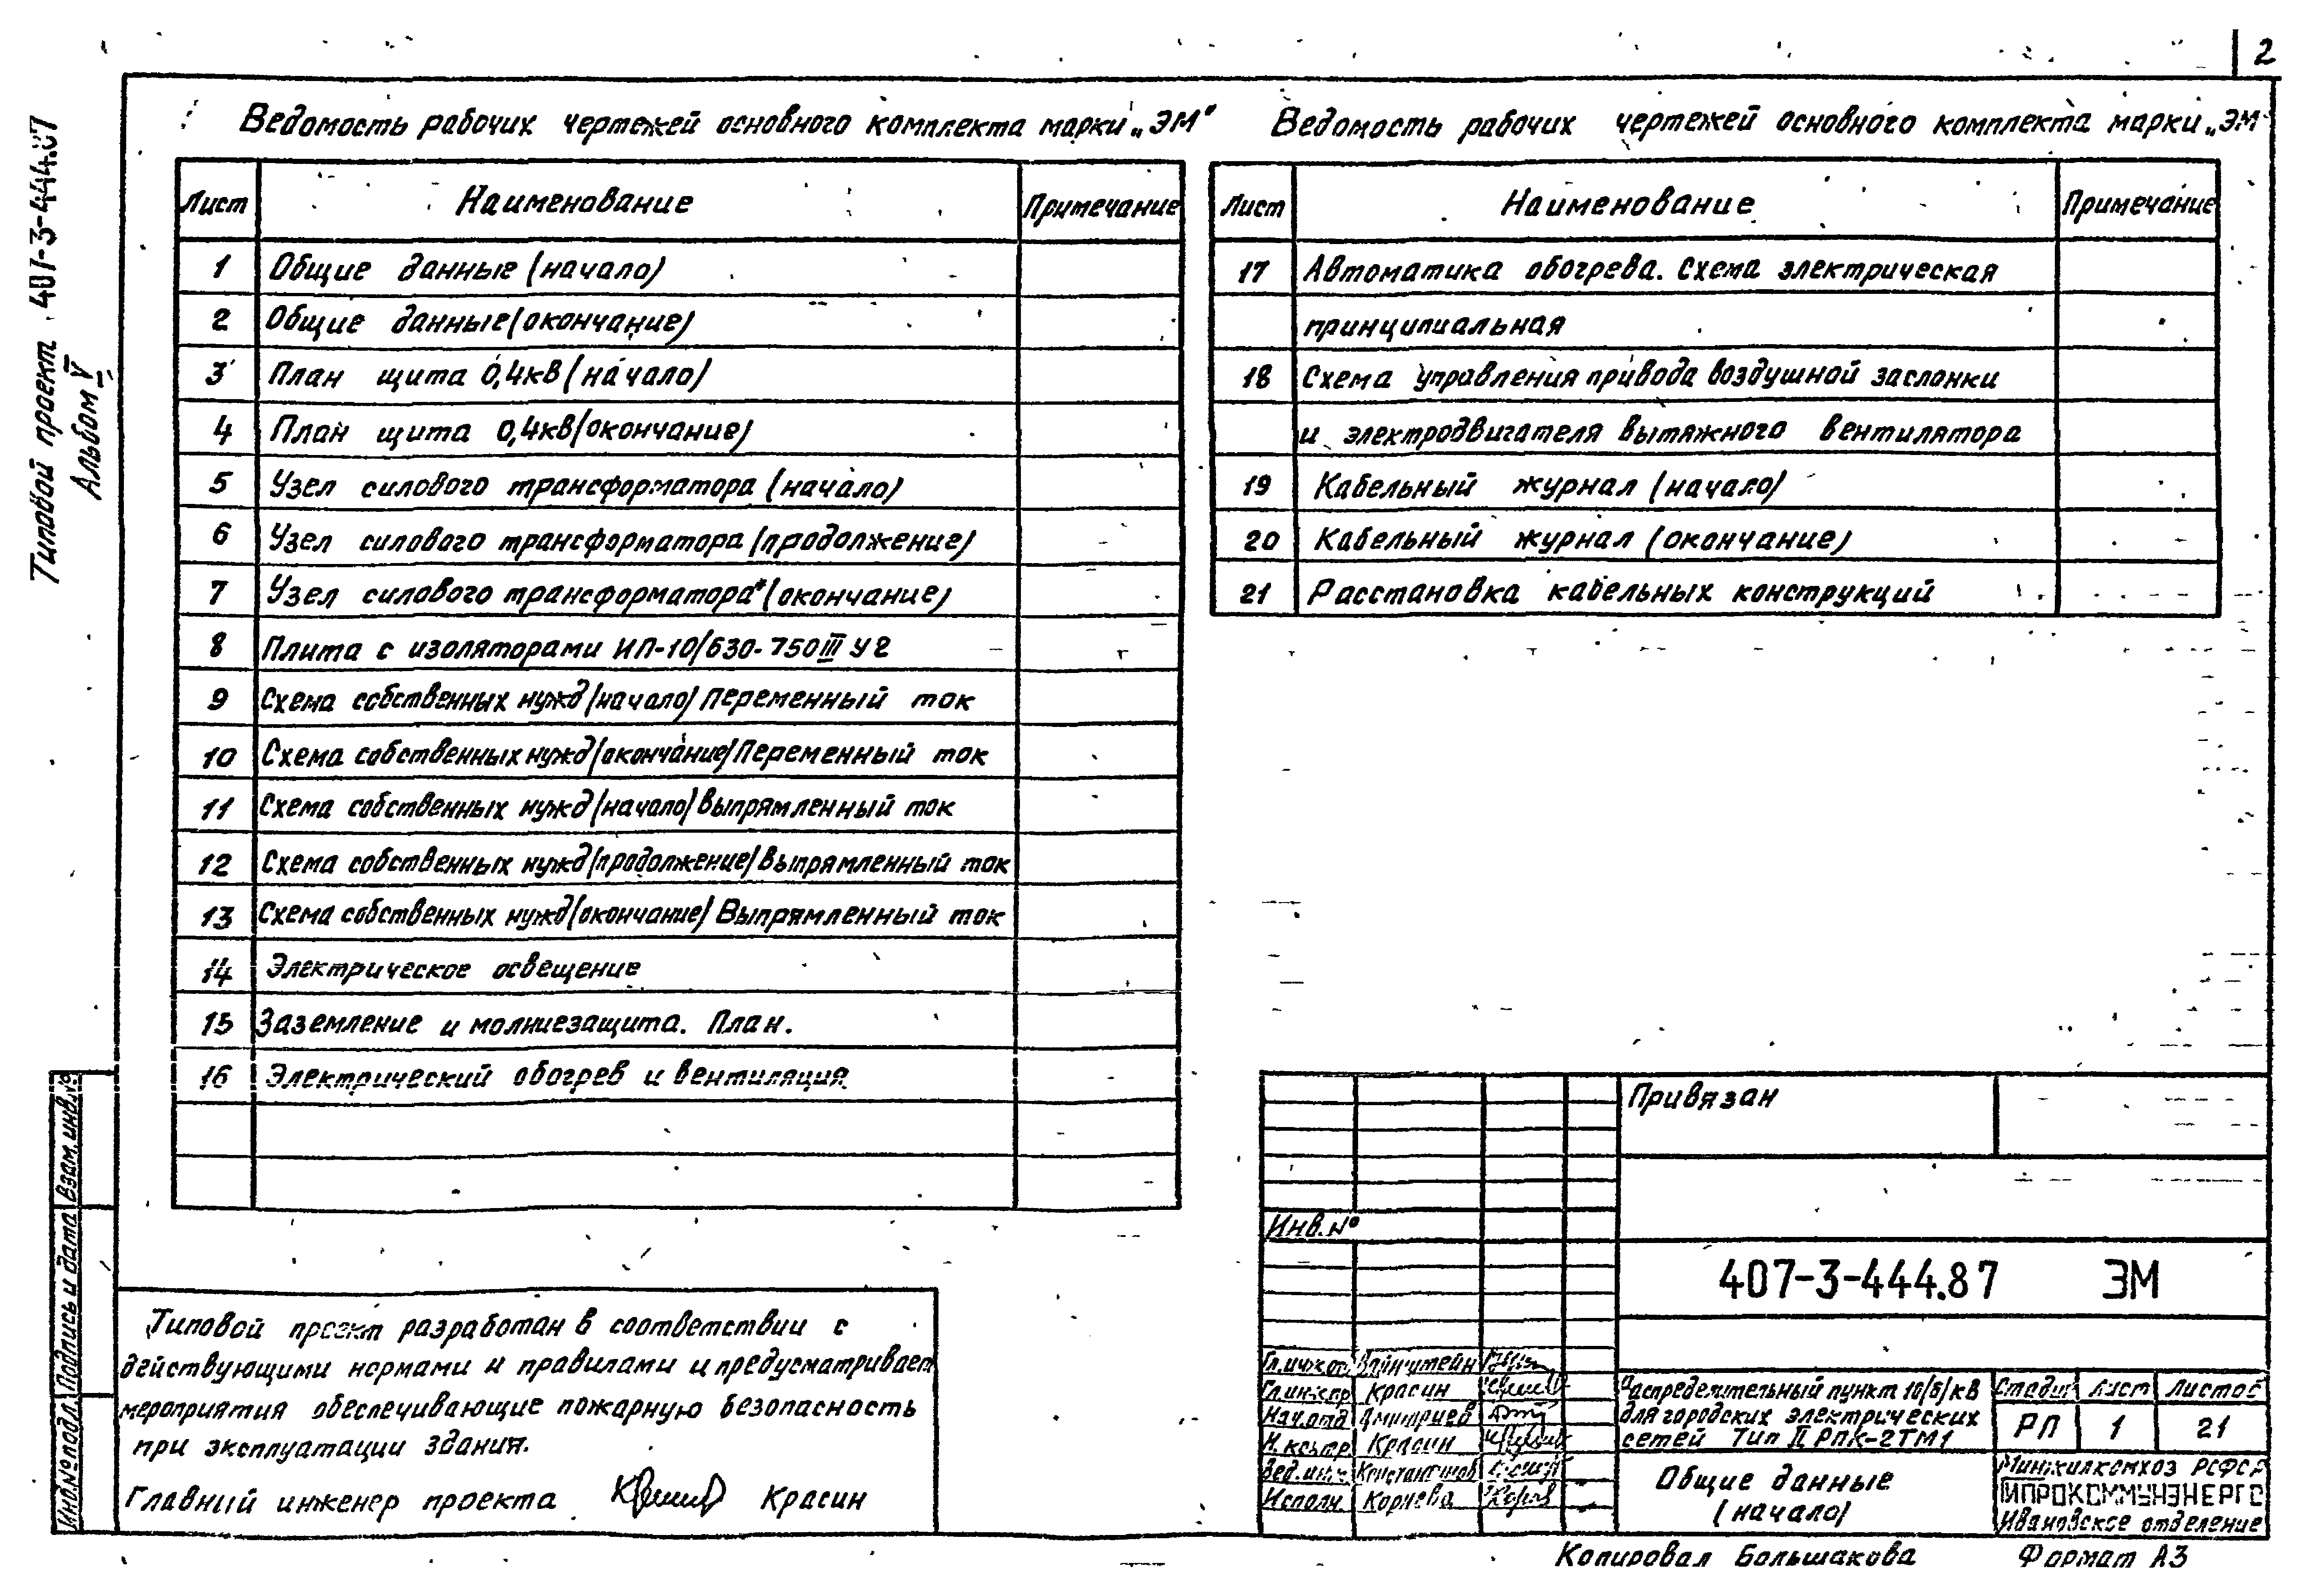 2
Типовой проект 407-3-444.87
Альбом V
Ведомость рабочих чертежей основного комплекта марки „ЭМ"
Лист Наименование Примечание
1 Общие данные (начало)
2 Общие данные (окончание)
3 План щита 0,4кВ (начало)
4 План щита 0,4кВ (окончание)
5 Узел силового трансформатора (начало)
6 Узел силового трансформатора (продолжение)
7 Узел силового трансформатора (окончание)
8 Плита с изоляторами ИП-10/630-750 III У2
9 Схема собственных нужд (начало) Переменный ток
10 Схема собственных нужд (окончание) Переменный ток
11 Схема собственных нужд (начало) Выпрямленный ток
12 Схема собственных нужд (продолжение) Выпрямленный ток
13 Схема собственных нужд (окончание) Выпрямленный ток
14 Электрическое освещение
15 Заземление и молниезащита. План.
16 Электрический обогрев и вентиляция
Ведомость рабочих чертежей основного комплекта марки „ЭМ
Лист Наименование Примечание
17 Автоматика обогрева. Схема электрическая
принципиальная
18 Схема управления привода воздушной заслонки
и электродвигателя вытяжного вентилятора
19 Кабельный журнал (начало)
20 Кабельный журнал (окончание)
21 Расстановка кабельных конструкций
Типовой проект разработан в соответствии с
действующими нормами и правилами и предусматривает
мероприятия обеспечивающие пожарную безопасность
при эксплуатации здания.
Главный инженер проекта Красин
Взам. инв. №
Подпись и дата
Инв. № подл.
Привязан
Инв. №
407-3-444.87 ЭМ
Вайнштейн
Гл.инж.пр. Красин
Нач.отд. Дмитриев
Н.контр. Красин
Вед.инж. Константинов
Исполн. Корнева
Распределительный пункт 10(6)кВ
для городских электрических
сетей Тип II РПК-2ТМ1
Стадия Лист Листов
РП 1 21
Общие данные
(начало)
Минжилкомхоз РСФСР
ГИПРОКОММУНЭНЕРГО
Ивановское отделение
Копировал Большакова Формат А3